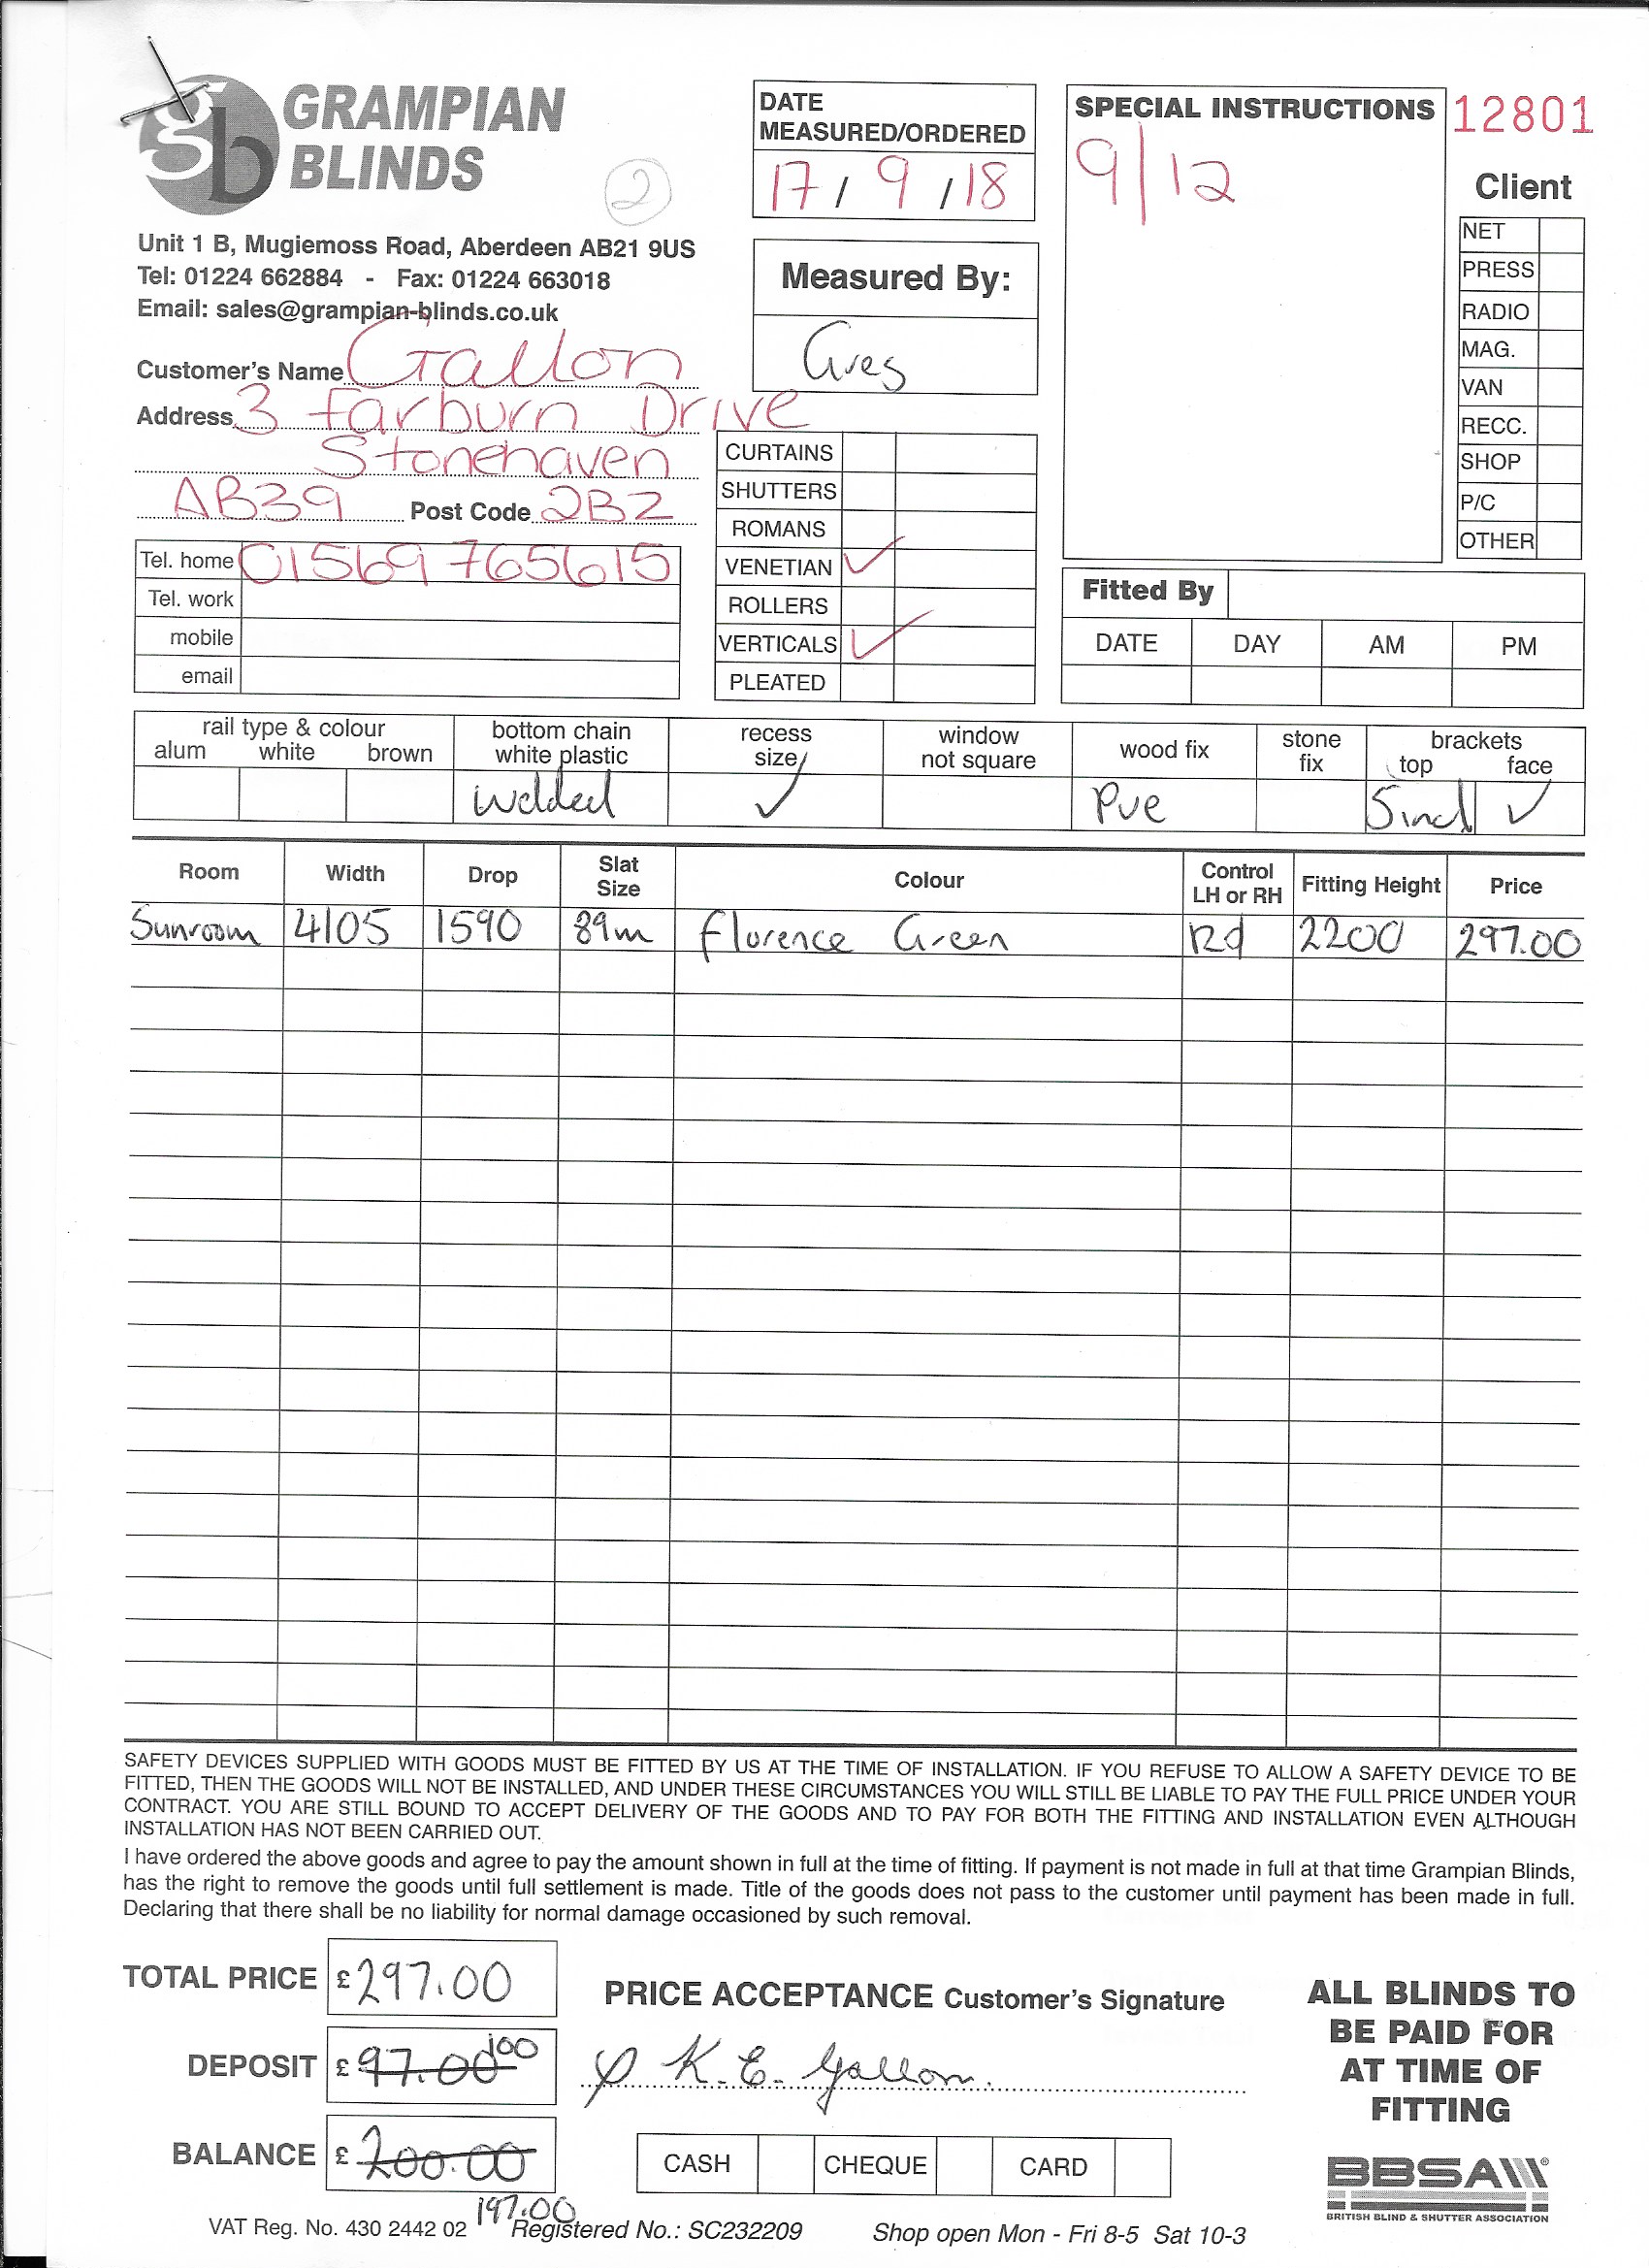 gb GRAMPIAN
BLINDS
2
Unit 1 B, Mugiemoss Road, Aberdeen AB21 9US
Tel: 01224 662884 - Fax: 01224 663018
Email: sales@grampian-blinds.co.uk
Customer's Name Gallon
Address 3 Farburn Drive
Stonehaven
AB39 Post Code 2BZ
Tel. home 01569 765615
Tel. work
mobile
email
DATE
MEASURED/ORDERED
17 / 9 / 18
Measured By:
Greg
CURTAINS
SHUTTERS
ROMANS
VENETIAN ✓
ROLLERS
VERTICALS ✓
PLEATED
SPECIAL INSTRUCTIONS
9/12
12801
Client
NET
PRESS
RADIO
MAG.
VAN
RECC.
SHOP
P/C
OTHER
Fitted By
DATE DAY AM PM
rail type & colour bottom chain recess window wood fix stone brackets
alum white brown white plastic size not square fix top face
Welded ✓ Pve 5incl ✓
Room Width Drop Slat Size Colour Control LH or RH Fitting Height Price
Sunroom 4105 1590 89m Florence Green Rd 2200 297.00
SAFETY DEVICES SUPPLIED WITH GOODS MUST BE FITTED BY US AT THE TIME OF INSTALLATION. IF YOU REFUSE TO ALLOW A SAFETY DEVICE TO BE
FITTED, THEN THE GOODS WILL NOT BE INSTALLED, AND UNDER THESE CIRCUMSTANCES YOU WILL STILL BE LIABLE TO PAY THE FULL PRICE UNDER YOUR
CONTRACT. YOU ARE STILL BOUND TO ACCEPT DELIVERY OF THE GOODS AND TO PAY FOR BOTH THE FITTING AND INSTALLATION EVEN ALTHOUGH
INSTALLATION HAS NOT BEEN CARRIED OUT.
I have ordered the above goods and agree to pay the amount shown in full at the time of fitting. If payment is not made in full at that time Grampian Blinds,
has the right to remove the goods until full settlement is made. Title of the goods does not pass to the customer until payment has been made in full.
Declaring that there shall be no liability for normal damage occasioned by such removal.
TOTAL PRICE £ 297.00
DEPOSIT £ 97.00 100
BALANCE £ 200.00
197.00
PRICE ACCEPTANCE Customer's Signature
K. E. Gallon.
CASH CHEQUE CARD
ALL BLINDS TO
BE PAID FOR
AT TIME OF
FITTING
BBSA
BRITISH BLIND & SHUTTER ASSOCIATION
VAT Reg. No. 430 2442 02 Registered No.: SC232209 Shop open Mon - Fri 8-5 Sat 10-3